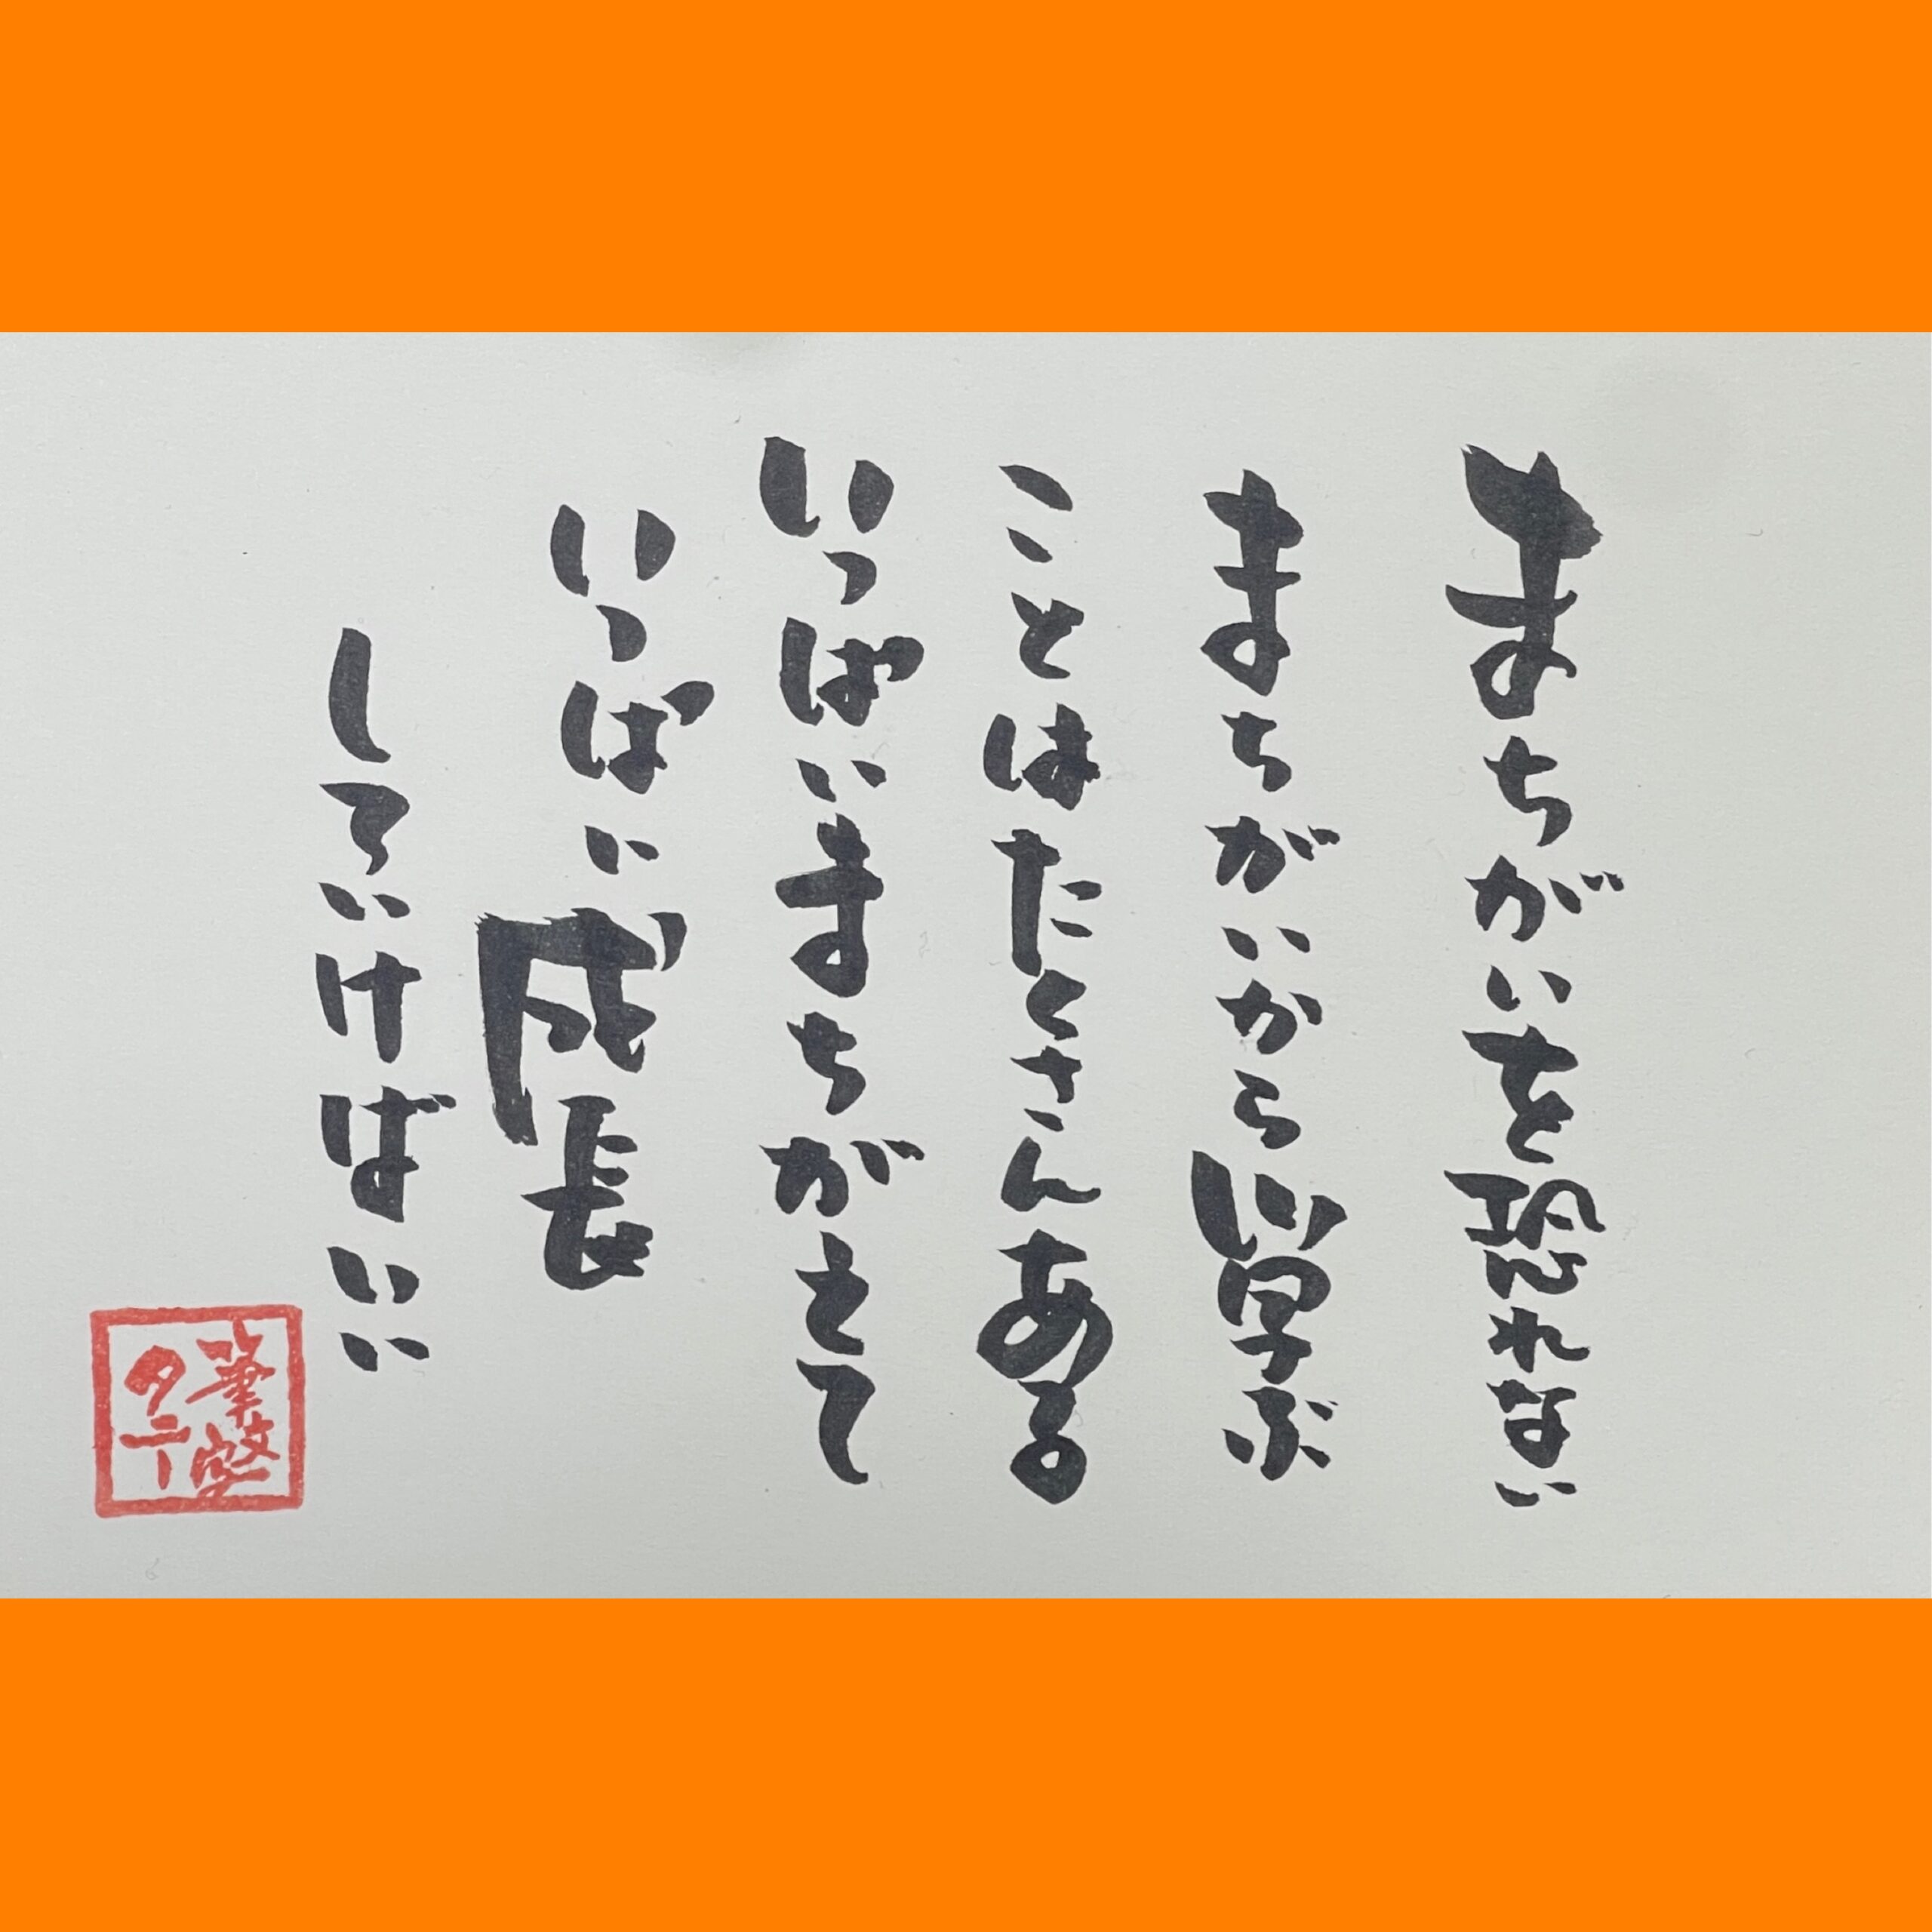 まちがいを恐れない
まちがいから学ぶ
ことはたくさんある
いっぱいまちがえて
いっぱい成長
していけばいい
筆文字
タニー